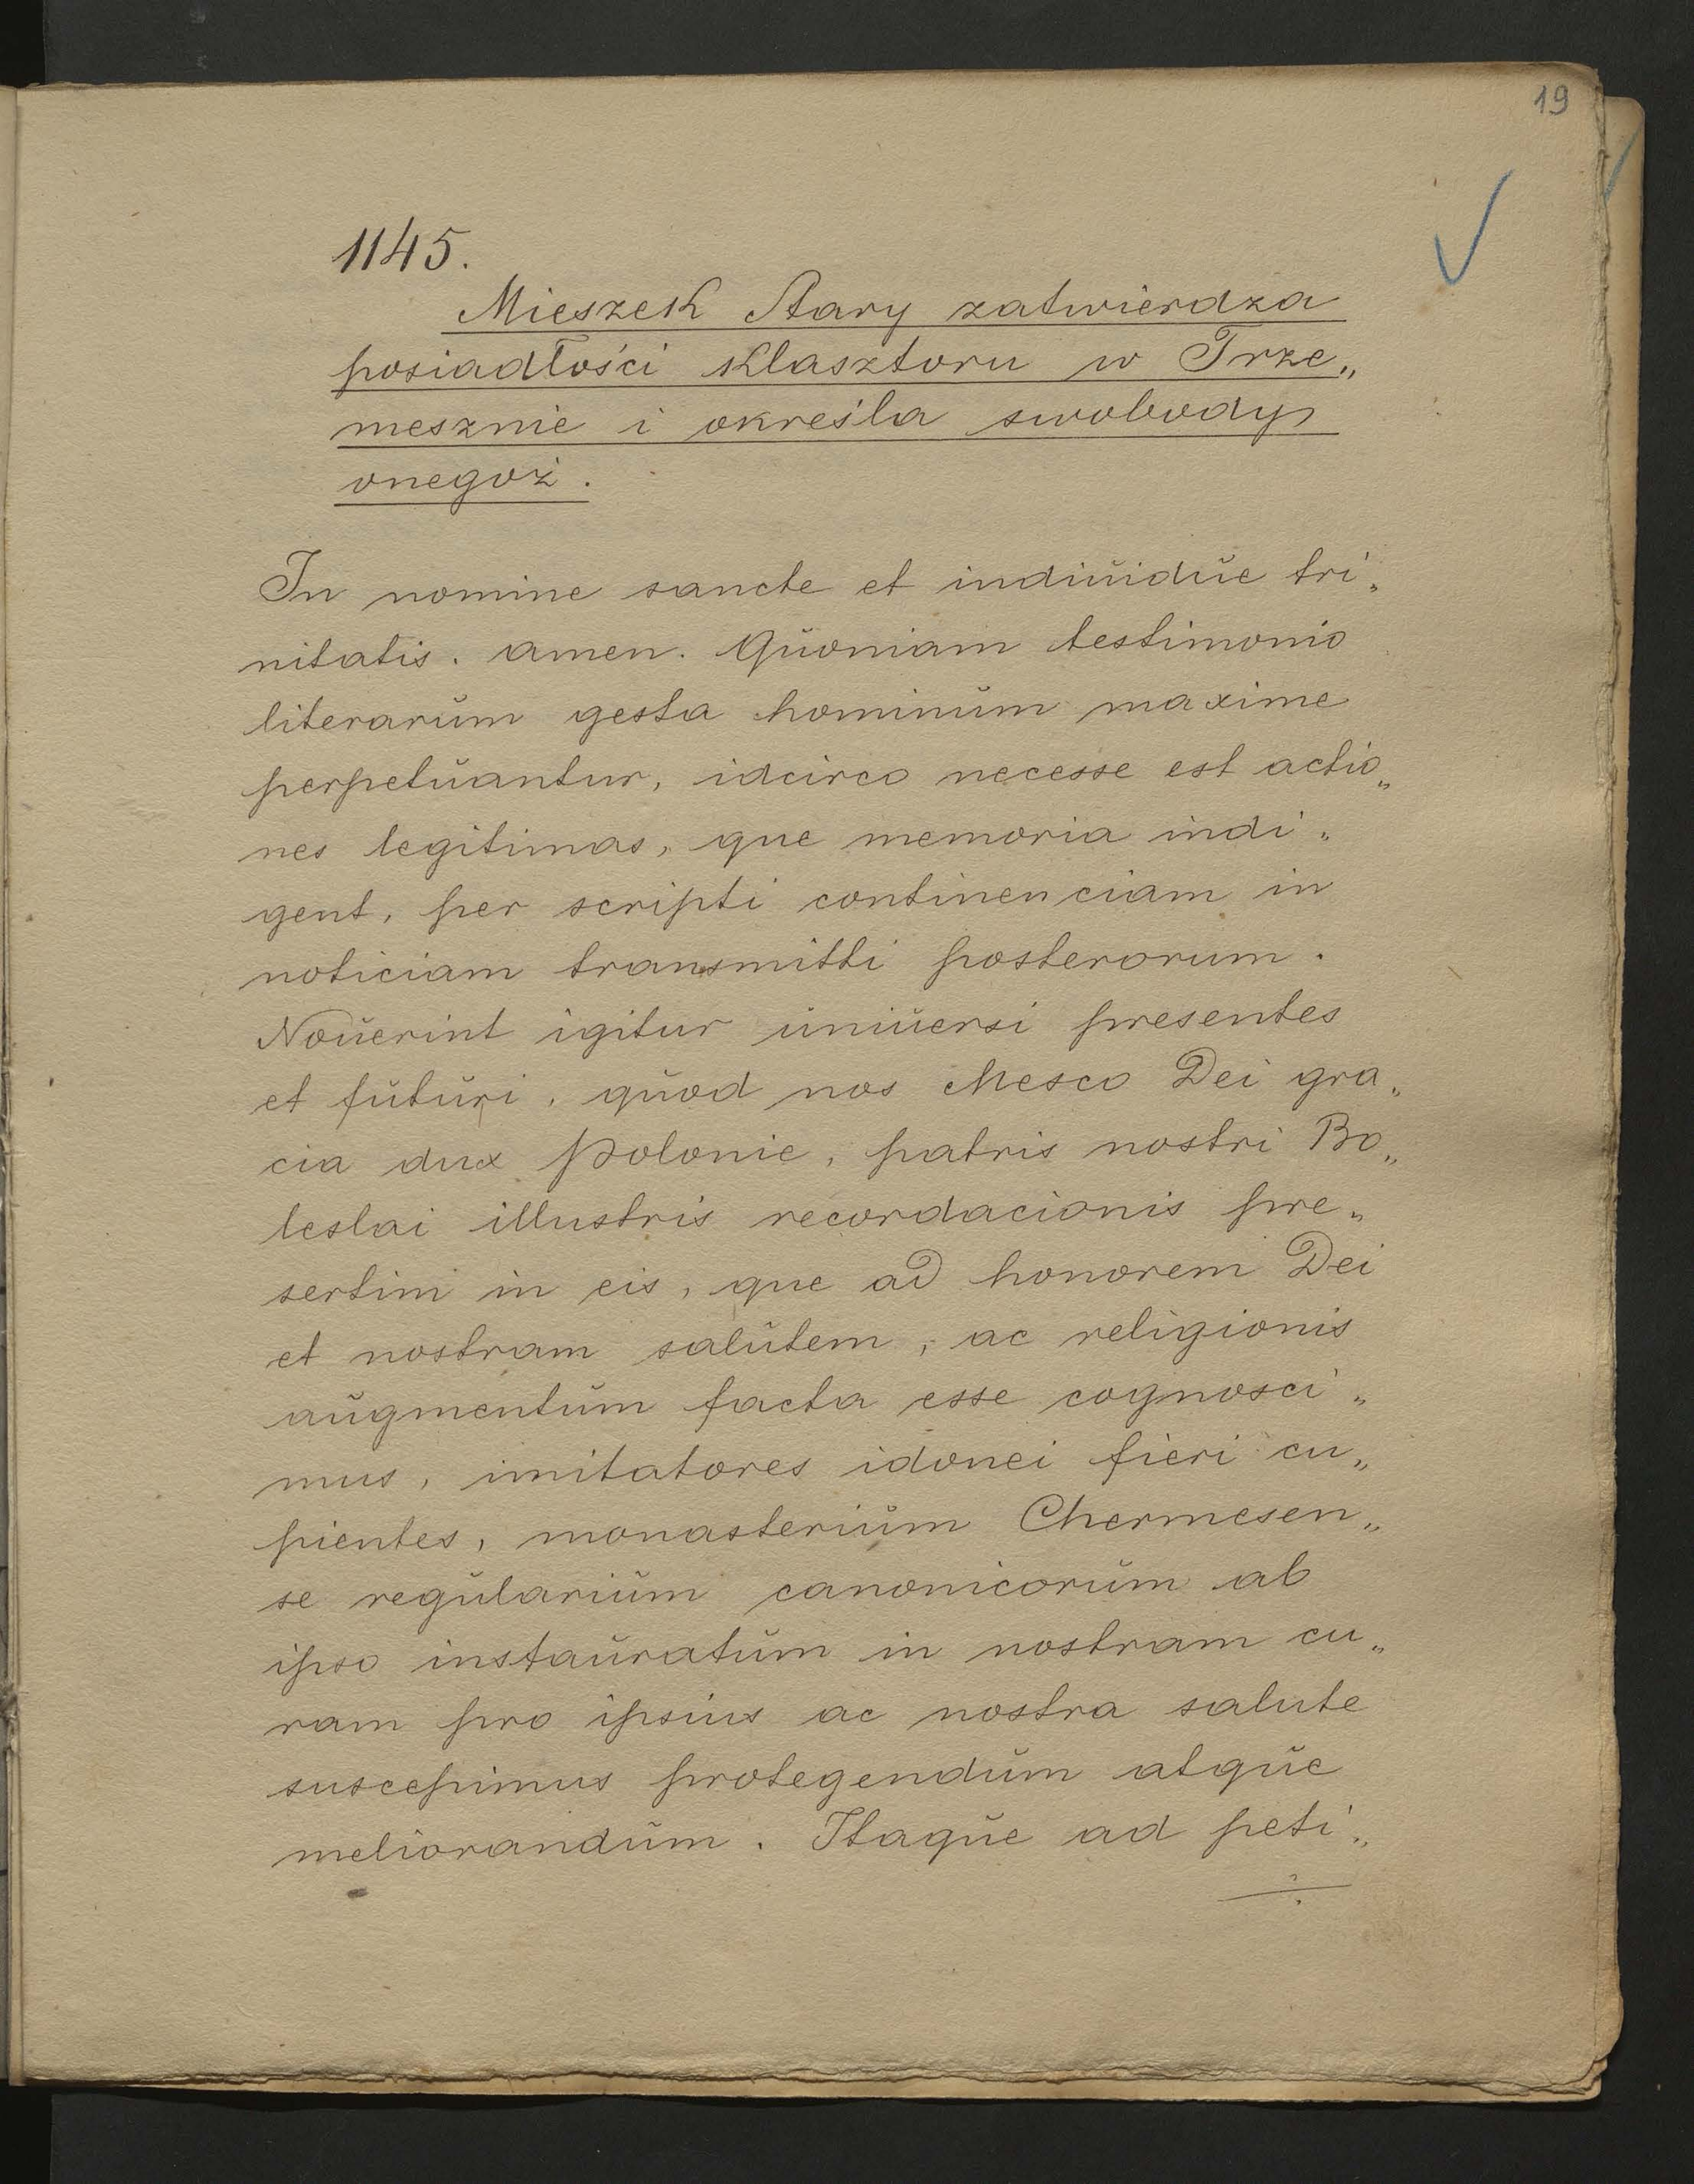 19
1145.
Mieszek Stary zatwierdza
posiadłości klasztoru w Trze„
mesznie i określa swobody
onegoż.
In nomine sancte et indiŭidŭe tri„
nitatis. amen. Qŭoniam testimonio
literarŭm gesta hominŭm maxime
perpetŭantur, idcirco necesse est actio„
nes legitimas, que memoria indi„
gent, per scripti continenciam in
noticiam transmitti posterorum.
Noŭerint igitur ŭniŭersi presentes
et fŭtŭri, qŭod nos Mesco Dei gra„
cia dux Polonie, patris nostri Bo„
leslai illustris recordacionis pre„
sertim in eis, que ad honorem Dei
et nostram salŭtem, ac religionis
aŭgmentŭm facta esse cognosci„
mus, imitatores idonei fieri cu„
pientes, monasteriŭm Chermesen„
se regŭlariŭm canonicorŭm ab
ipso instaŭratŭm in nostram cu„
ram pro ipsius ac nostra salute
suscepimus protegendŭm atqŭe
meliorandŭm. Itaqŭe ad peti„